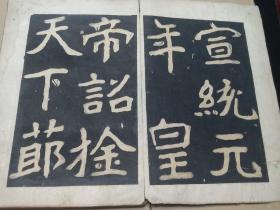 宣統元
年皇
帝詔
天下莭